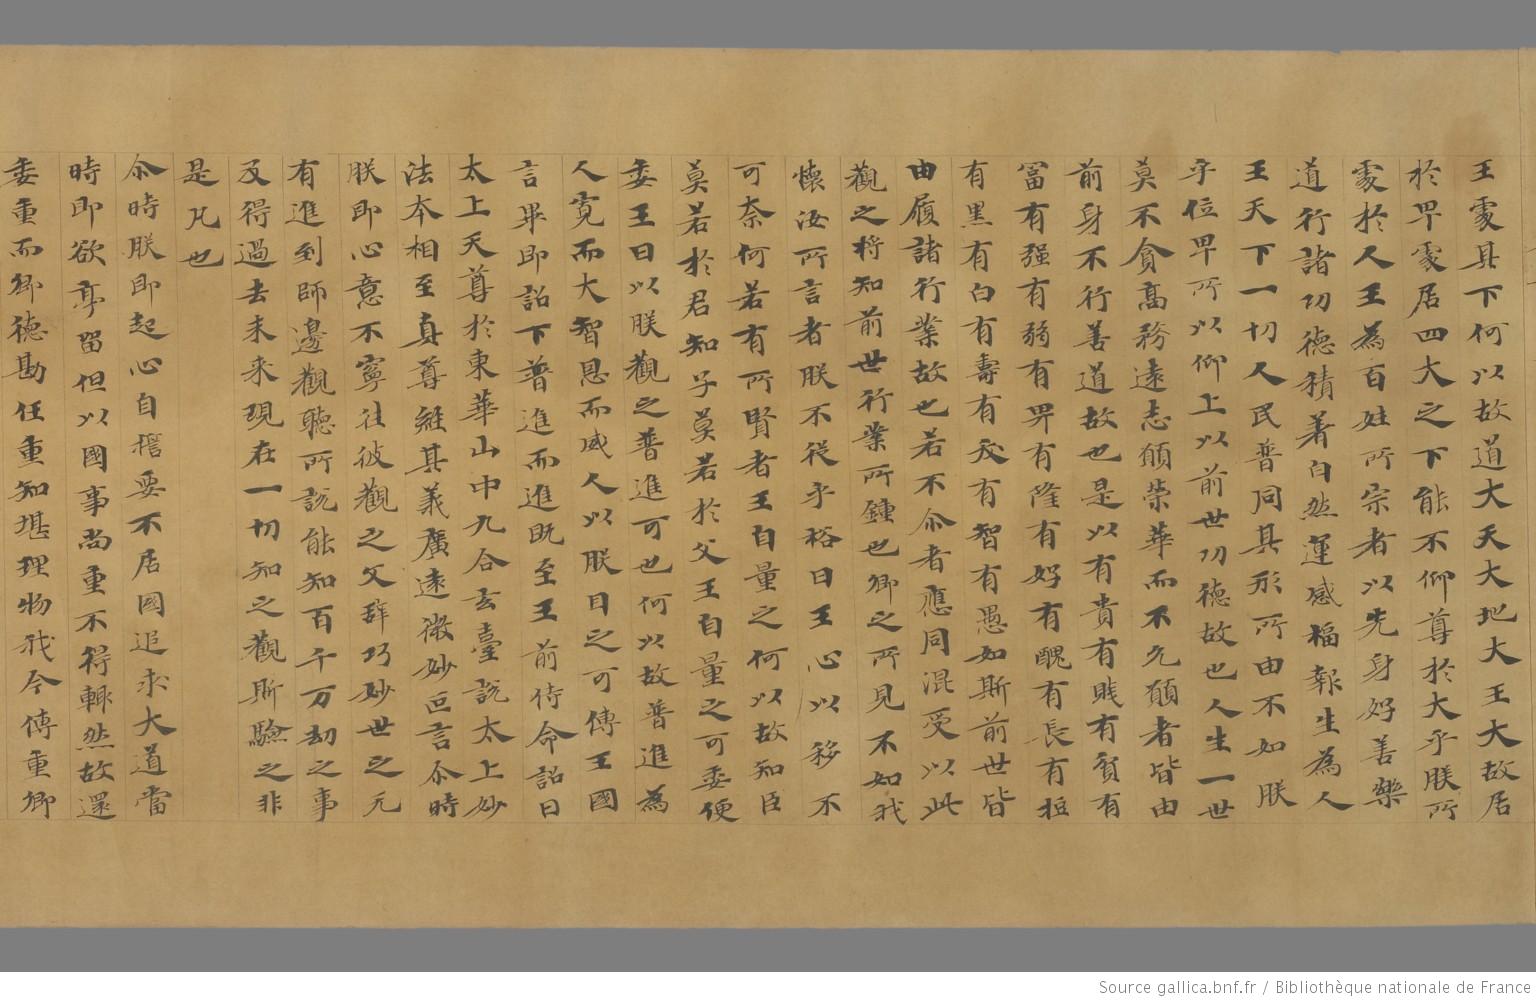 王處其下何以故道大天大地大王大故居
於卑處居四大之下能不仰尊於大乎朕所
處於人王為百姓所宗者以先身好善樂
道行諸功德積著自然運感福報生為人
王天下一切人民普同其形所由不如朕
乎位卑所以仰上以前世功德故也人生一世
莫不貪高務遠志願榮華而不允願者皆由
前身不行善道故也是以有貴有賤有貧有
富有强有弱有昇有隆有好有醜有長有短
有黑有白有壽有夭有智有愚如斯前世皆
由履諸行業故也若不尒者應同混受以此
觀之将知前世行業所鍾也卿之所見不如我
懷汝所言者朕不從乎裕曰王心以移不
可柰何若有所賢者王自量之何以故知臣
莫若於君知子莫若於父王自量之可委便
委王曰以朕觀之普進可也何以故普進為
人寛而大智恩而威人以朕目之可傳王國
言畢即詔下普進而進既至王前侍命詔曰
太上天尊於東華山中九合玄臺說太上妙
法夲相至真尊經其義廣遠微妙叵言尒時
朕即心意不寧往彼觀之文辞巧妙世之元
有進到師邊觀聽所說能知百千万劫之事
及得過去未来現在一切知之觀斯驗之非
是凡也
尒時朕即起心自擔要不居國追求大道當
時即欲亭留但以國事尚重不得輙然故還
委重而卿德勘任重知堪理物我今傳重卿
Source gallica.bnf.fr / Bibliothèque nationale de France